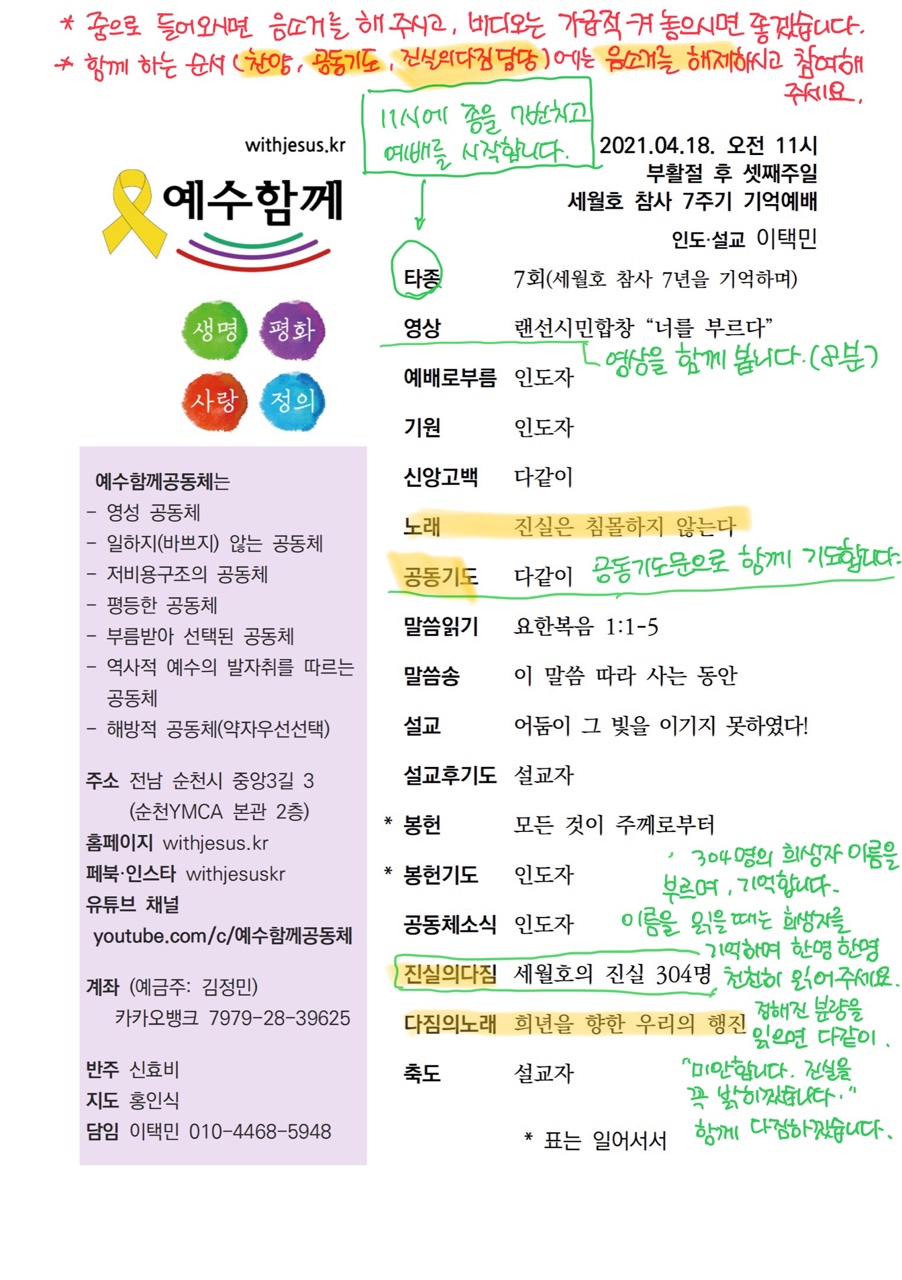 * 줌으로 들어오시면 음소거를 해 주시고, 비디오는 가급적 켜 놓으시면 좋겠습니다.
* 함께 하는 순서(찬양, 공동기도, 진실의다짐 담당)에는 음소거를 해제하시고 참여해
주세요.
11시에 종을 7번치고
예배를 시작합니다.
withjesus.kr
예수함께
생명 평화
사랑 정의
2021.04.18. 오전 11시
부활절 후 셋째주일
세월호 참사 7주기 기억예배
인도·설교 이택민
타종 7회(세월호 참사 7년을 기억하며)
영상 랜선시민합창 “너를 부르다”
영상을 함께 봅니다.(8분)
예배로부름 인도자
기원 인도자
신앙고백 다같이
노래 진실은 침몰하지 않는다
공동기도 다같이 공동기도문으로 함께 기도합니다.
말씀읽기 요한복음 1:1-5
말씀송 이 말씀 따라 사는 동안
설교 어둠이 그 빛을 이기지 못하였다!
설교후기도 설교자
* 봉헌 모든 것이 주께로부터
* 봉헌기도 인도자
공동체소식 인도자
진실의다짐 세월호의 진실 304명
다짐의노래 희년을 향한 우리의 행진
축도 설교자
* 표는 일어서서
304명의 희생자 이름을
부르며, 기억합니다.
이름을 읽을때는 희생자를
기억하며 한명한명
천천히 읽어주세요.
정해진 분량을
읽으면 다같이.
"미안합니다. 진실을
꼭 밝히겠습니다."
함께 다짐하겠습니다.
예수함께공동체는
- 영성 공동체
- 일하지(바쁘지) 않는 공동체
- 저비용구조의 공동체
- 평등한 공동체
- 부름받아 선택된 공동체
- 역사적 예수의 발자취를 따르는
공동체
- 해방적 공동체(약자우선선택)
주소 전남 순천시 중앙3길 3
(순천YMCA 본관 2층)
홈페이지 withjesus.kr
페북·인스타 withjesuskr
유튜브 채널
youtube.com/c/예수함께공동체
계좌 (예금주: 김정민)
카카오뱅크 7979-28-39625
반주 신효비
지도 홍인식
담임 이택민 010-4468-5948